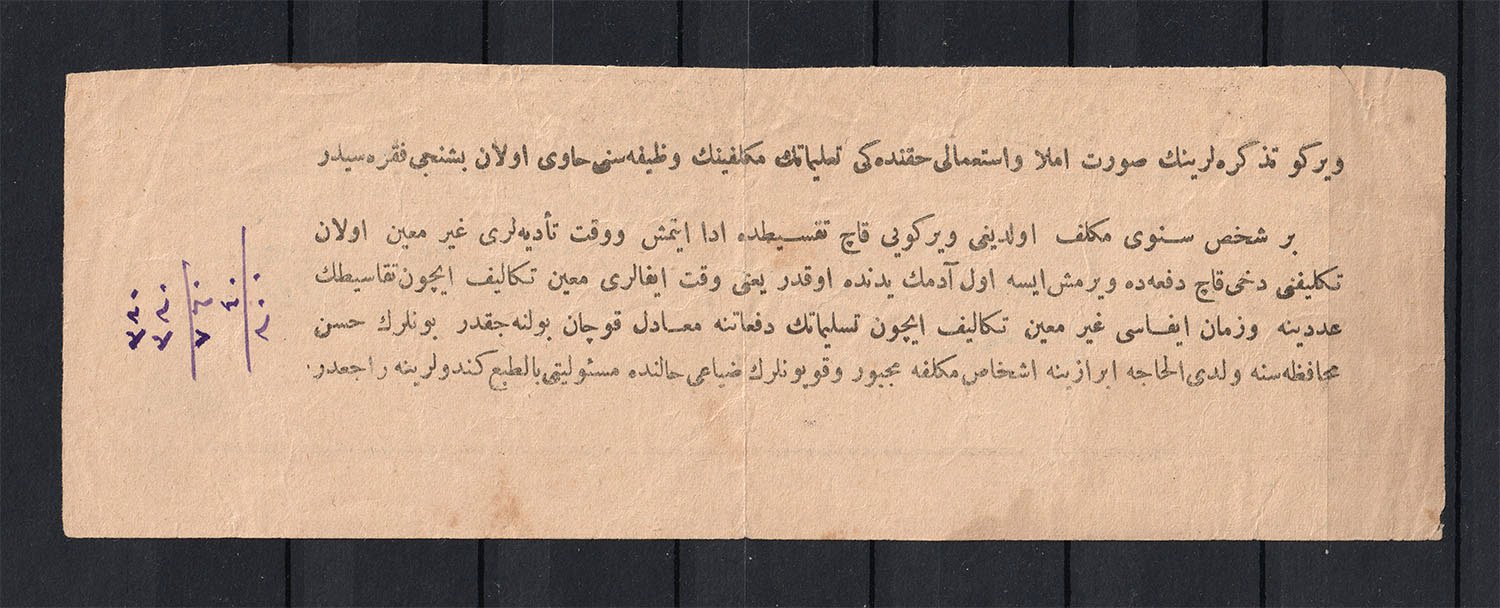 ويركو تذكره‌لرينك صورت املا واستعمالى حقنده‌كى تعليماتك مكلفينك وظيفه‌سنى حاوى اولان بشنجى فقره‌سيدر
بر شخص سنوى مكلف اولديغى ويركويى قاچ تقسيطده ادا ايتمش ووقت تأديه‌لرى غير معين اولان
تكليفنى دخى قاچ دفعه‌ده ويرمش ايسه اول آدمك يدنده اوقدر يعنى وقت ايفالرى معين تكاليف ايچون تقاسيطك
عددينه وزمان ايفاسى غير معين تكاليف ايچون تسليماتك دفعاتنه معادل قوچان بولنه‌جقدر بونلرك حسن
محافظه‌سنه ولدى الحاجه ابرازينه اشخاص مكلفه مجبور وقوپونلرك ضياعى حالنده مسئوليتى بالطبع كندولرينه راجعدر.